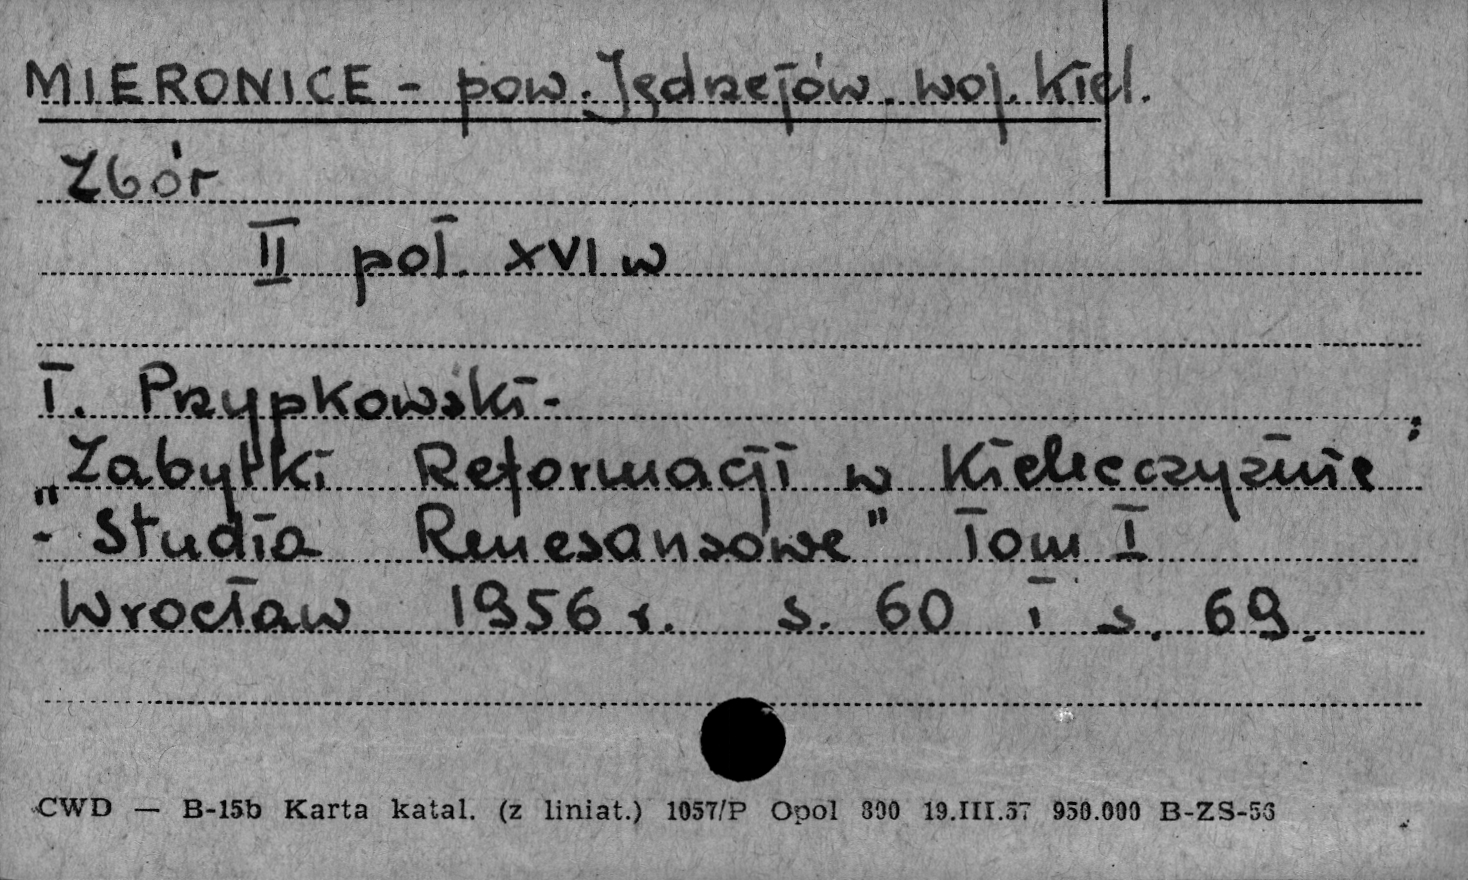 MIERONICE - pow. Jędrzejów. woj. Kiel.
Zbór
II poł. XVI w
T. Przypkowski -
Zabytki Reformacji w Kielecczyźnie ;
- "Studia Renesansowe" Tom I
Wrocław 1956 r. s. 60 i s. 69.
CWD — B-15b Karta katal. (z liniat.) 1057/P Opol 800 19.III.57 950.000 B-ZS-56